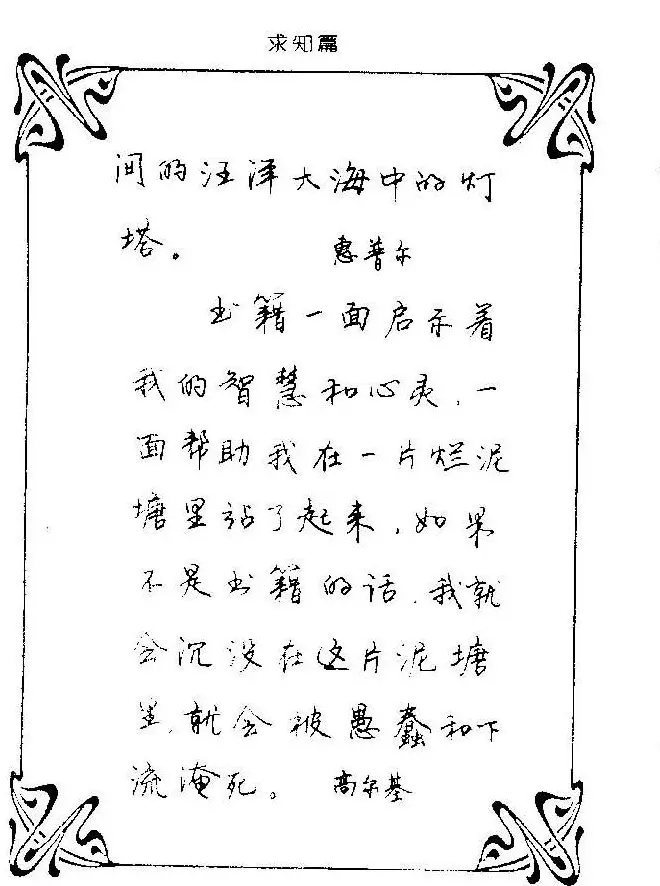 求知篇
间的汪洋大海中的灯
塔。 惠普尔
书籍一面启示着
我的智慧和心灵，一
面帮助我在一片烂泥
塘里站了起来，如果
不是书籍的话，我就
会沉没在这片泥塘
里，就会被愚蠢和下
流淹死。 高尔基